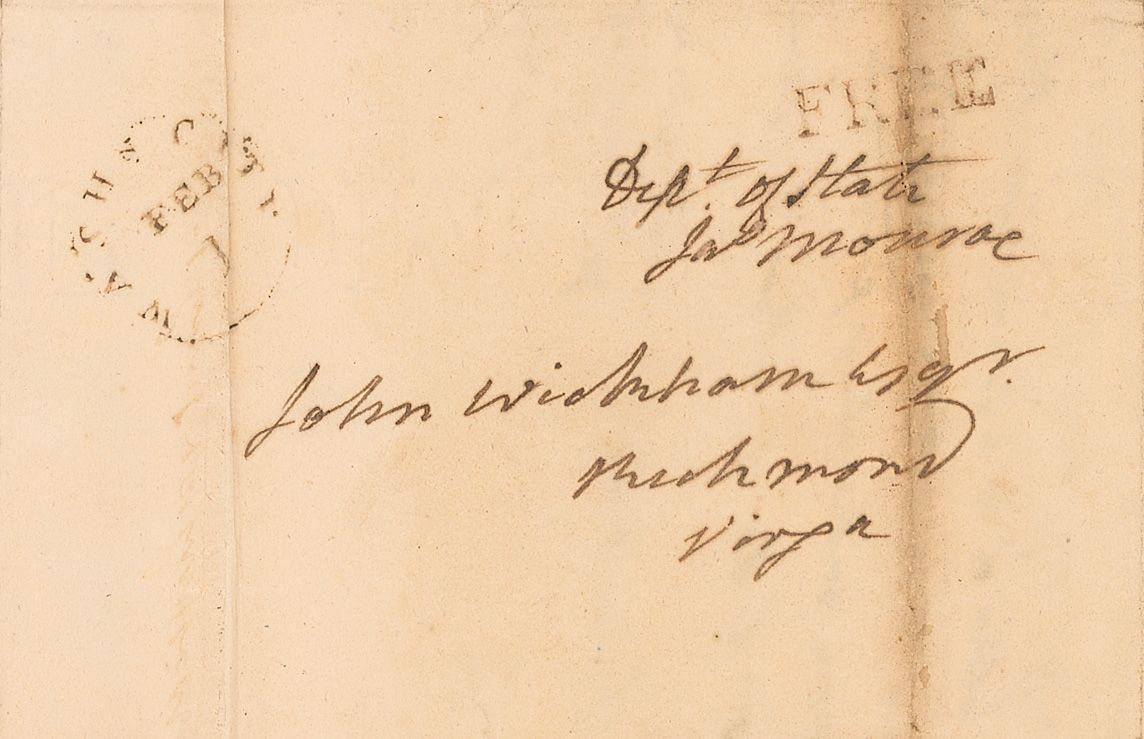 FREE
WASHN CITY.
FEB
1
Dept. of State
Jas Monroe
John Wickham Esqr.
Richmond
Virga